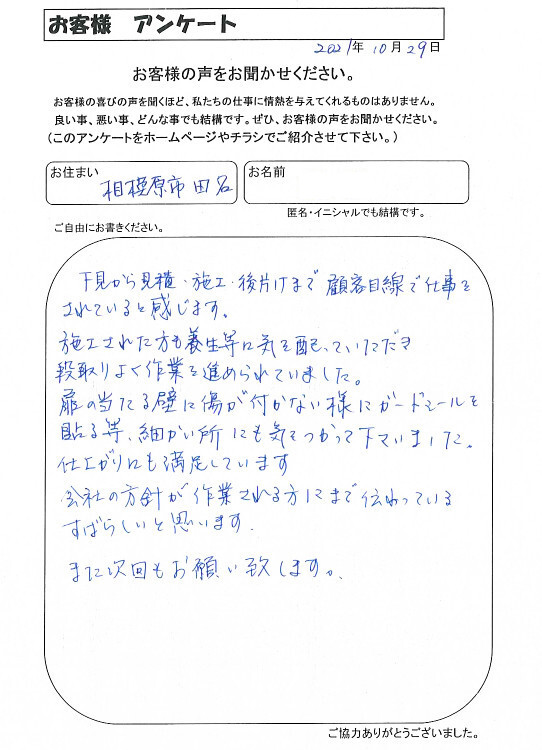 お客様 アンケート
2021年10月29日
お客様の声をお聞かせください。
お客様の喜びの声を聞くほど、私たちの仕事に情熱を与えてくれるものはありません。
良い事、悪い事、どんな事でも結構です。ぜひ、お客様の声をお聞かせください。
（このアンケートをホームページやチラシでご紹介させて下さい。）
お住まい 相模原市田名
お名前
匿名・イニシャルでも結構です。
ご自由にお書きください。
下見から見積・施工・後片けまで顧客目線で仕事を
されていると感じます。
施工された方も養生等に気を配っていただき
段取りよく作業を進められていました。
扉の当たる壁に傷が付かない様にガードシールを
貼る等、細かい所にも気をつかって下さいました。
仕上がりにも満足しています
会社の方針が作業される方にまで伝わっている
すばらしいと思います.
また次回もお願い致します。
ご協力ありがとうございました。